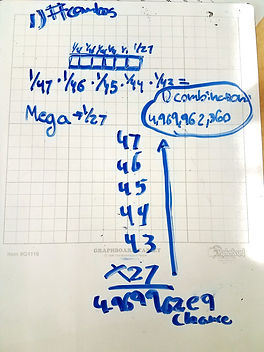 1) # combos
1/47 1/46 1/45 1/44 1/43 1/27
1/47 · 1/46 · 1/45 · 1/44 · 1/43 =
Combinations
4,969,962,360
Mega → 1/27
47
46
45
44
43
×27
4969962e9
Chance
Item #G1116
GRAPHBOARD